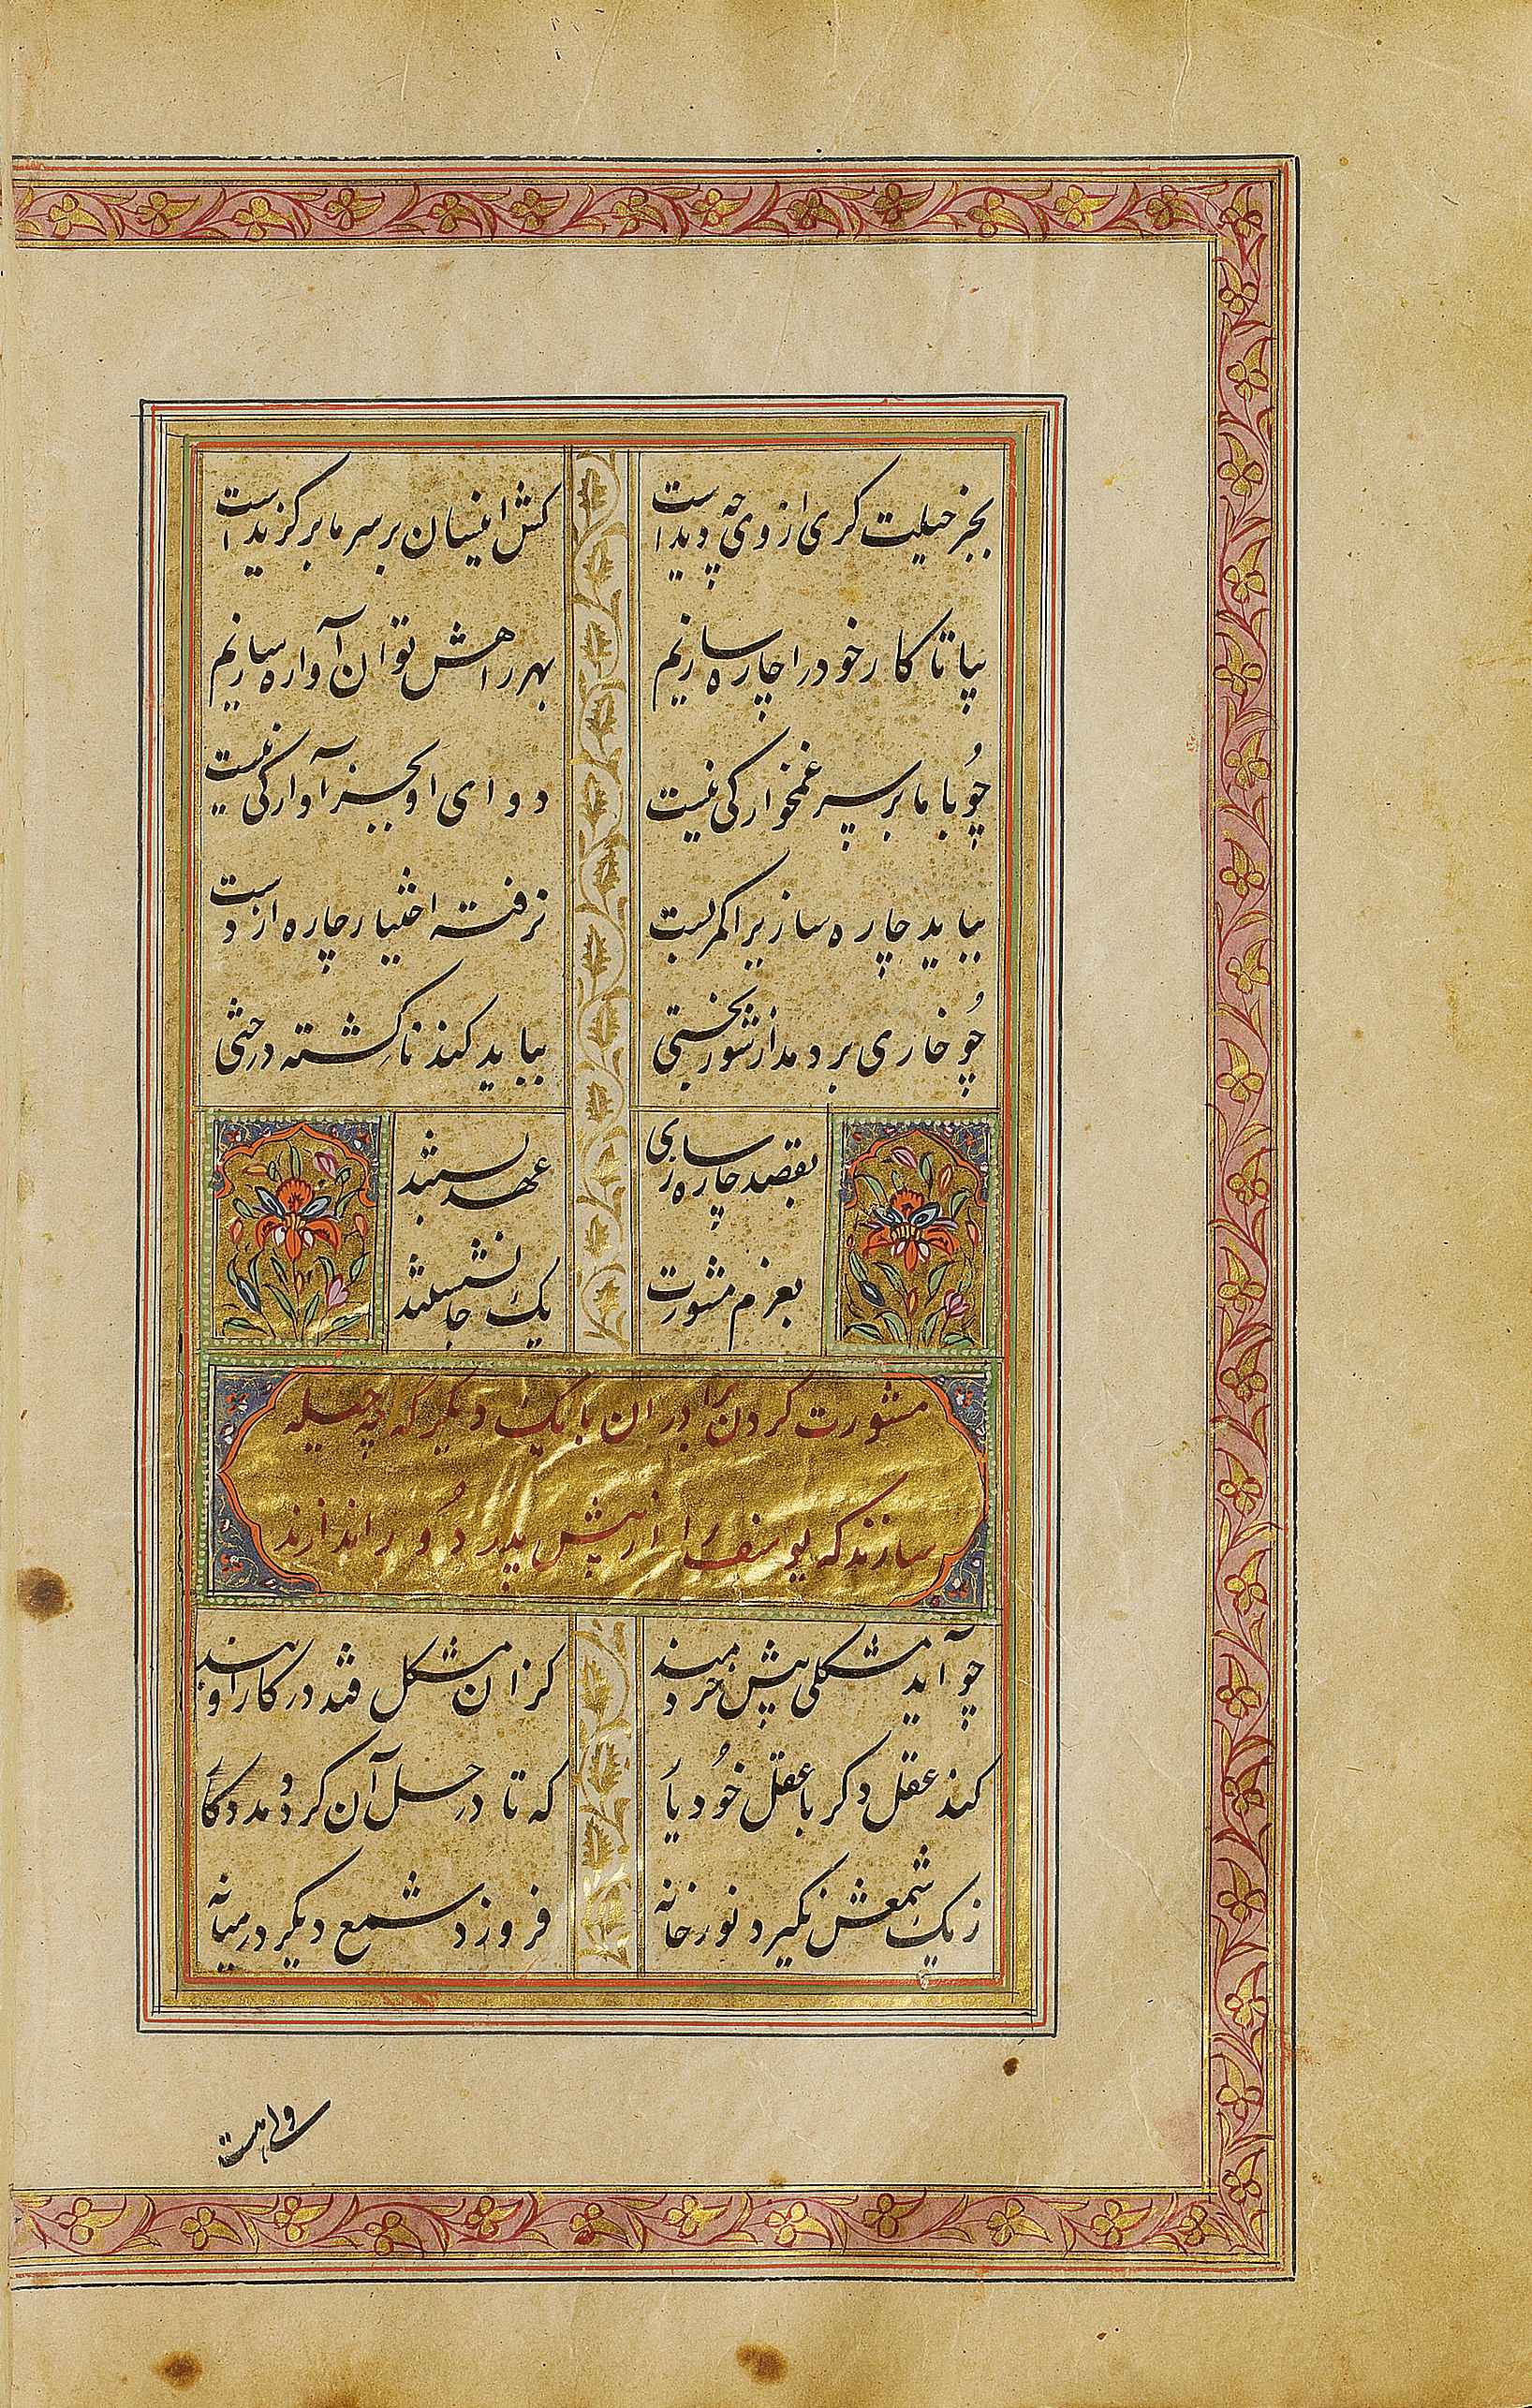 بجز حیلت کری از وی چه دیداست کش اینسان بر سر ما برکزیداست
بیا تا کار خود را چاره سازیم بهر راهش توان آواره سازیم
چو با ما بر سر غمخوارکی نیست دوای او بجز آوارکی نیست
بباید چاره سازیرا کمر بست نرفته اختیار چاره از دست
چو خاری بر دمد از شوربختی بباید کند ناکشته درختی
بقصد چاره سازی عهد بستند
بعزم مشورت یک جا نشستند
مشورت کردن برادران با یک دیکر که چه حیله
سازند که یوسف را از پیش پدر دور اندازند
چو آید مشکلی پیش خردمند کزان مشکل فتد در کار او بند
کند عقل دکر با عقل خود یا که تا در حل آن کردد مددکا
ز یک شمعش نکیرد نور خانه فروزد شمع دیکر در میانه
ولی هست